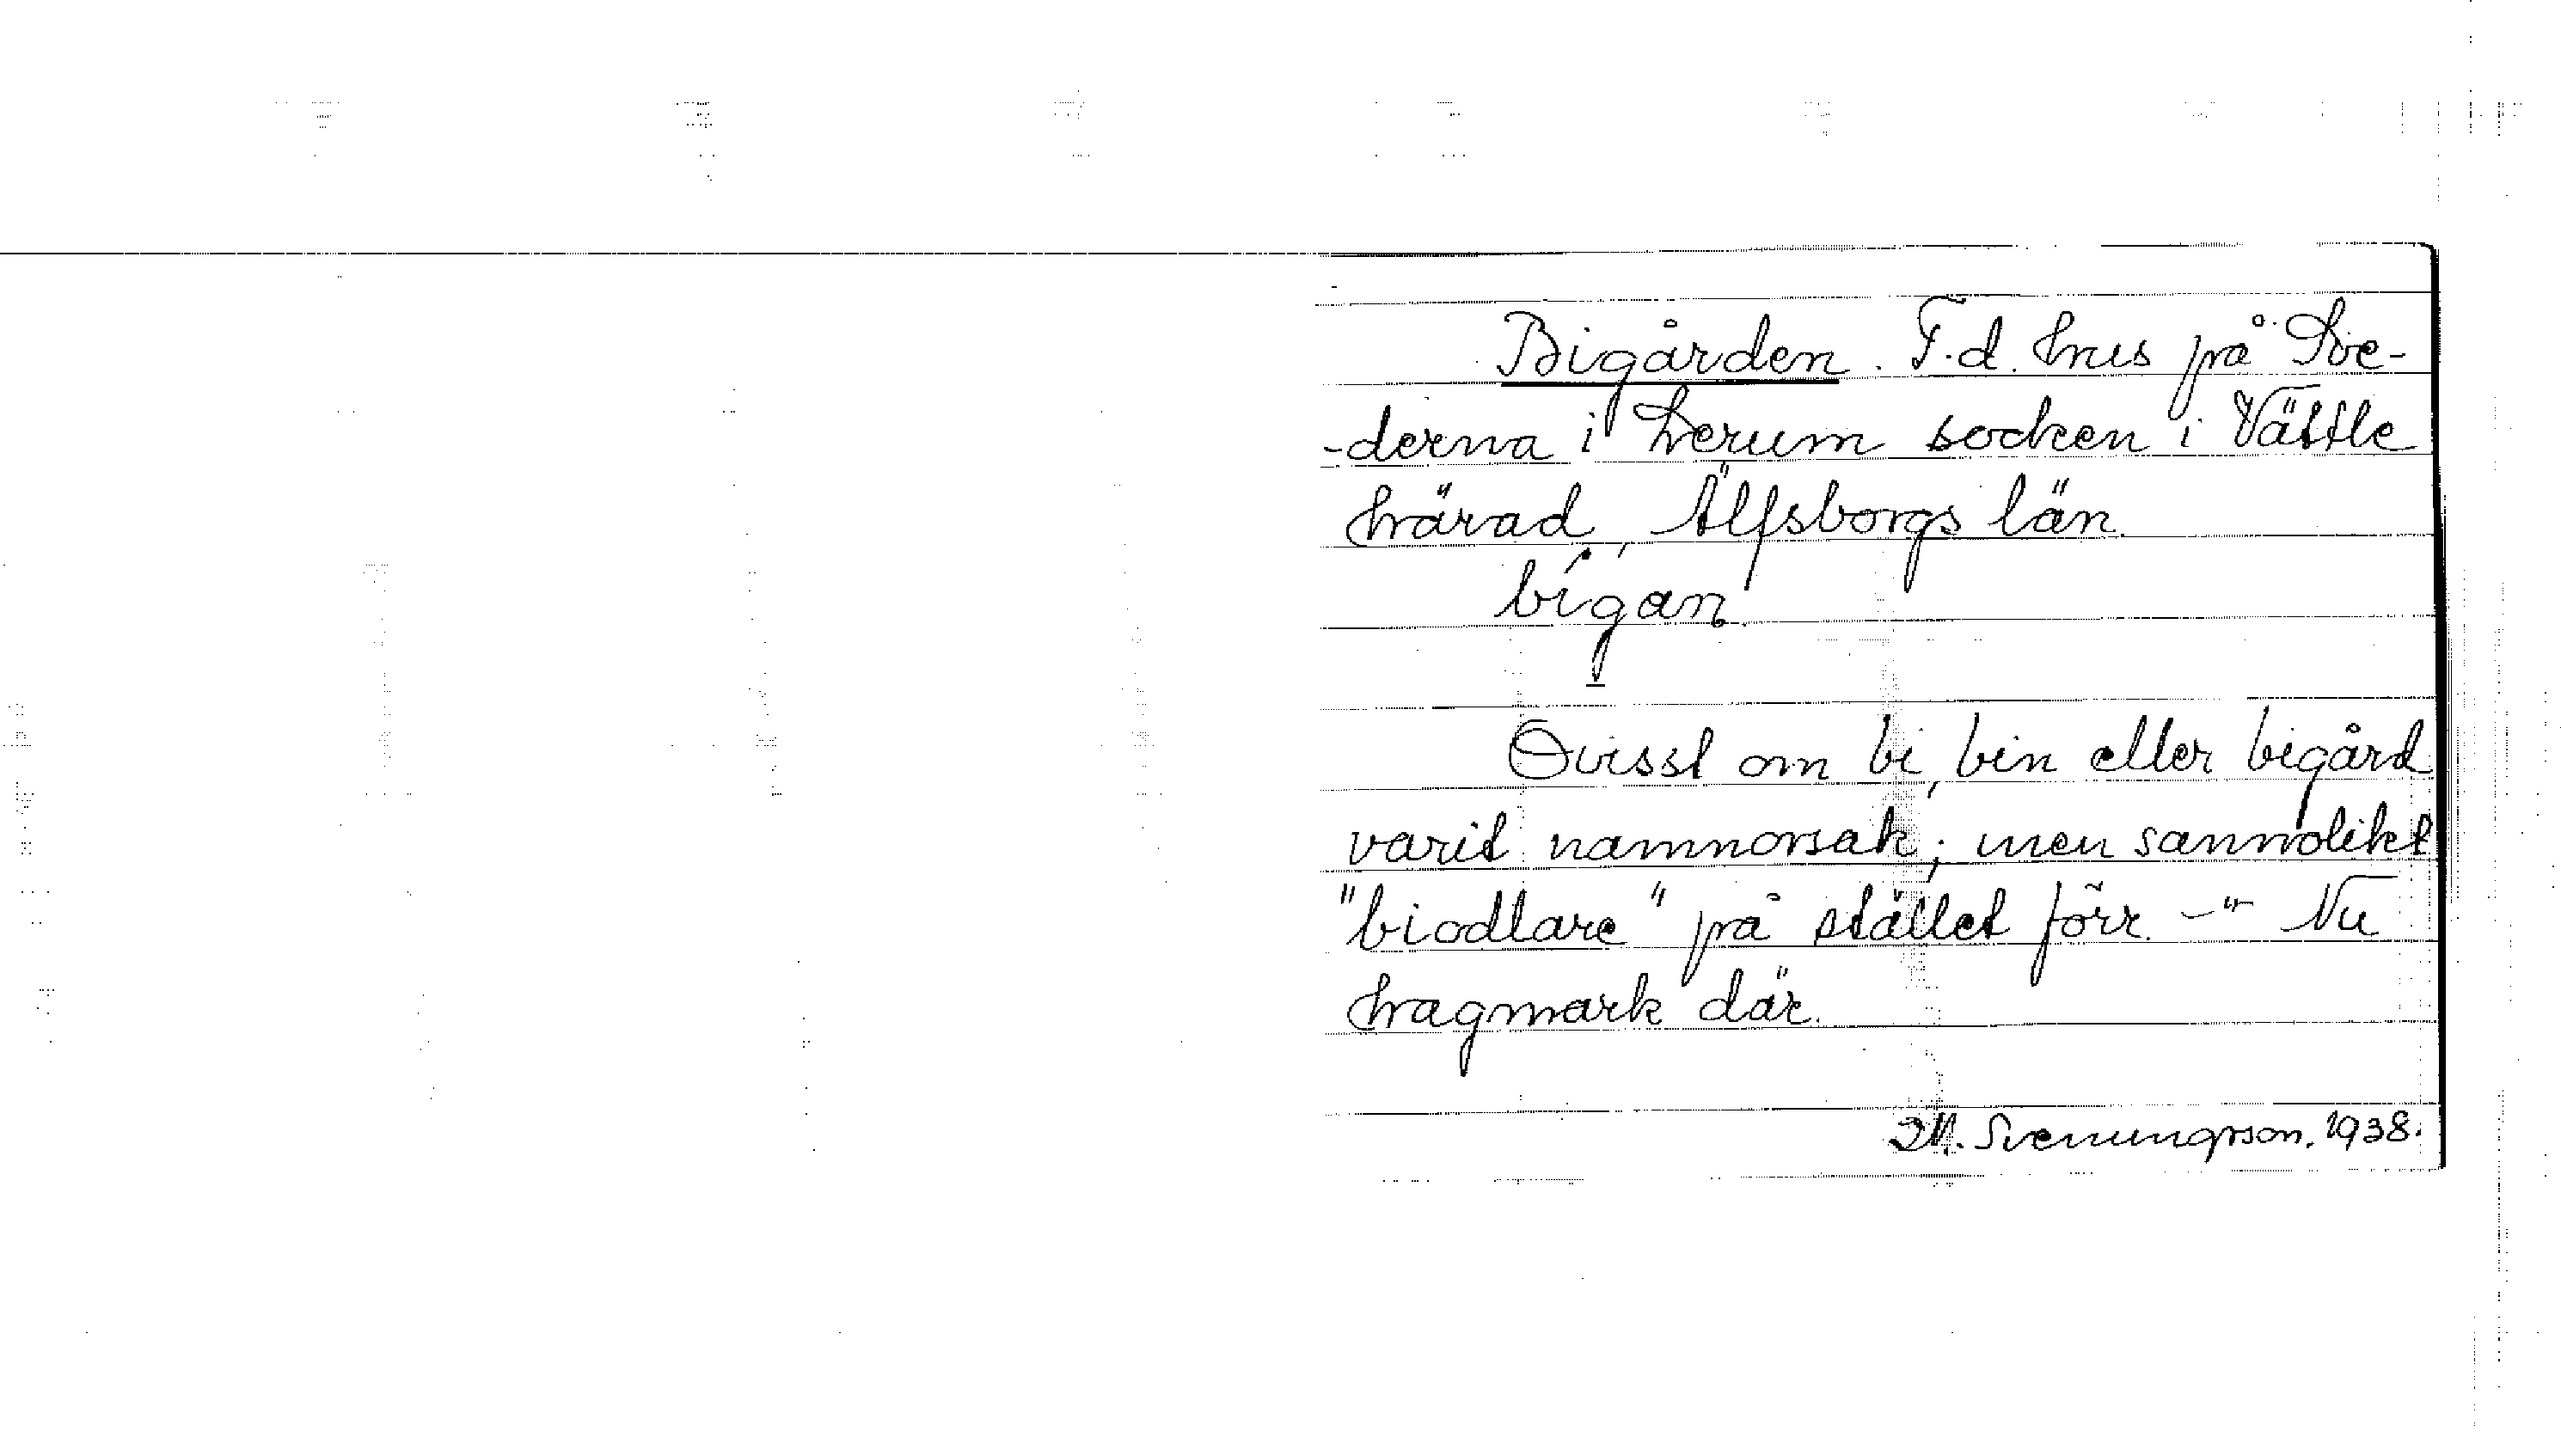 Bigården. F.d. hus på Sve-
-derna i Lerum socken i Vättle
härad, Älfsborgs län.
bigan.
Ovisst om bi, bin eller bigård
varit namnorsak; men sannolikt
"biodlare" på stället förr. -"- Nu
hagmark där.
Svenungsson. 1938.